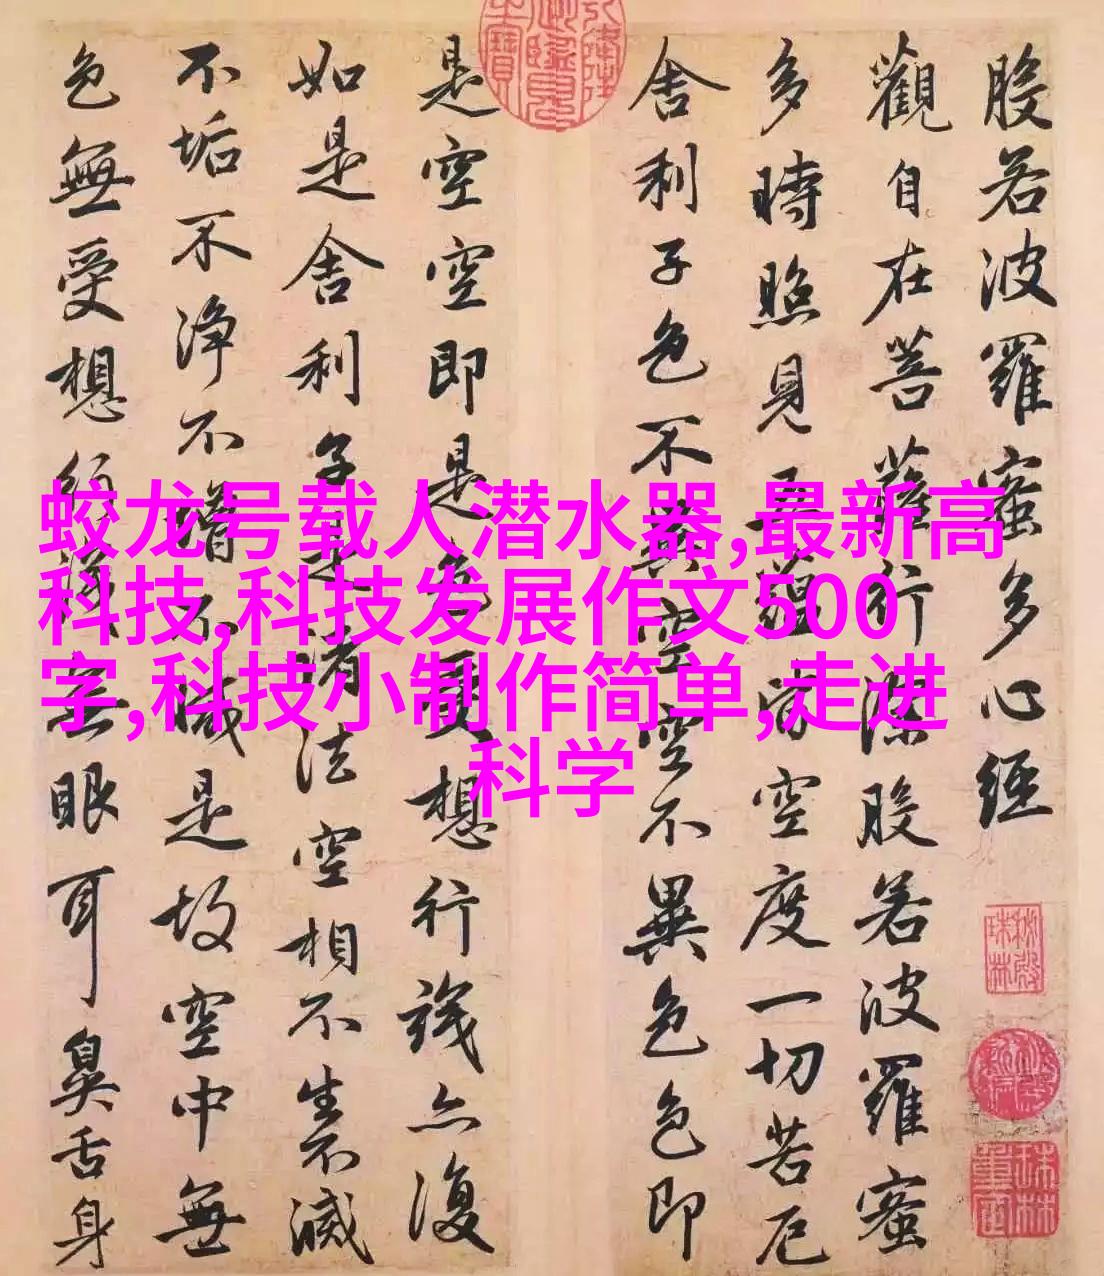 般若波羅蜜多心經
觀自在菩薩行深般若波羅蜜
多時照見五蘊皆空度一切苦厄
舍利子色不異空空不異色色即
是空空即是色受想行識亦復
如是舍利子是諸法空相不生不滅
不垢不淨不增不減是故空中無
色無受想行識無眼耳鼻舌身
蛟龙号载人潜水器,最新高
科技,科技发展作文500
字,科技小制作简单,走进
科学